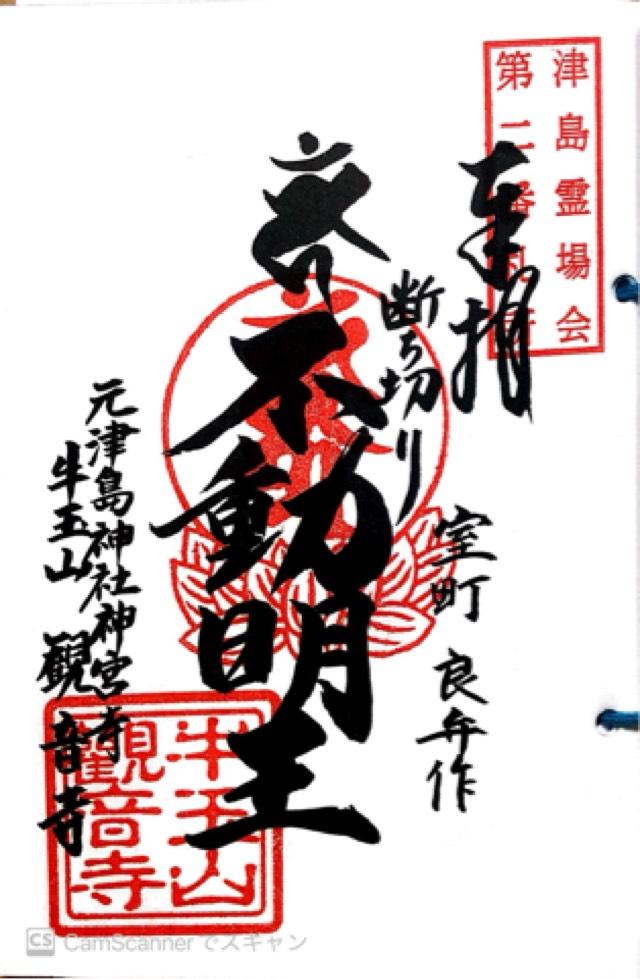 津島霊場会
第二番札所
奉拝
断ち切り
室町 良弁作
不動明王
元津島神社神宮寺
牛玉山 観音寺
牛玉山
觀音寺
CS CamScanner でスキャン